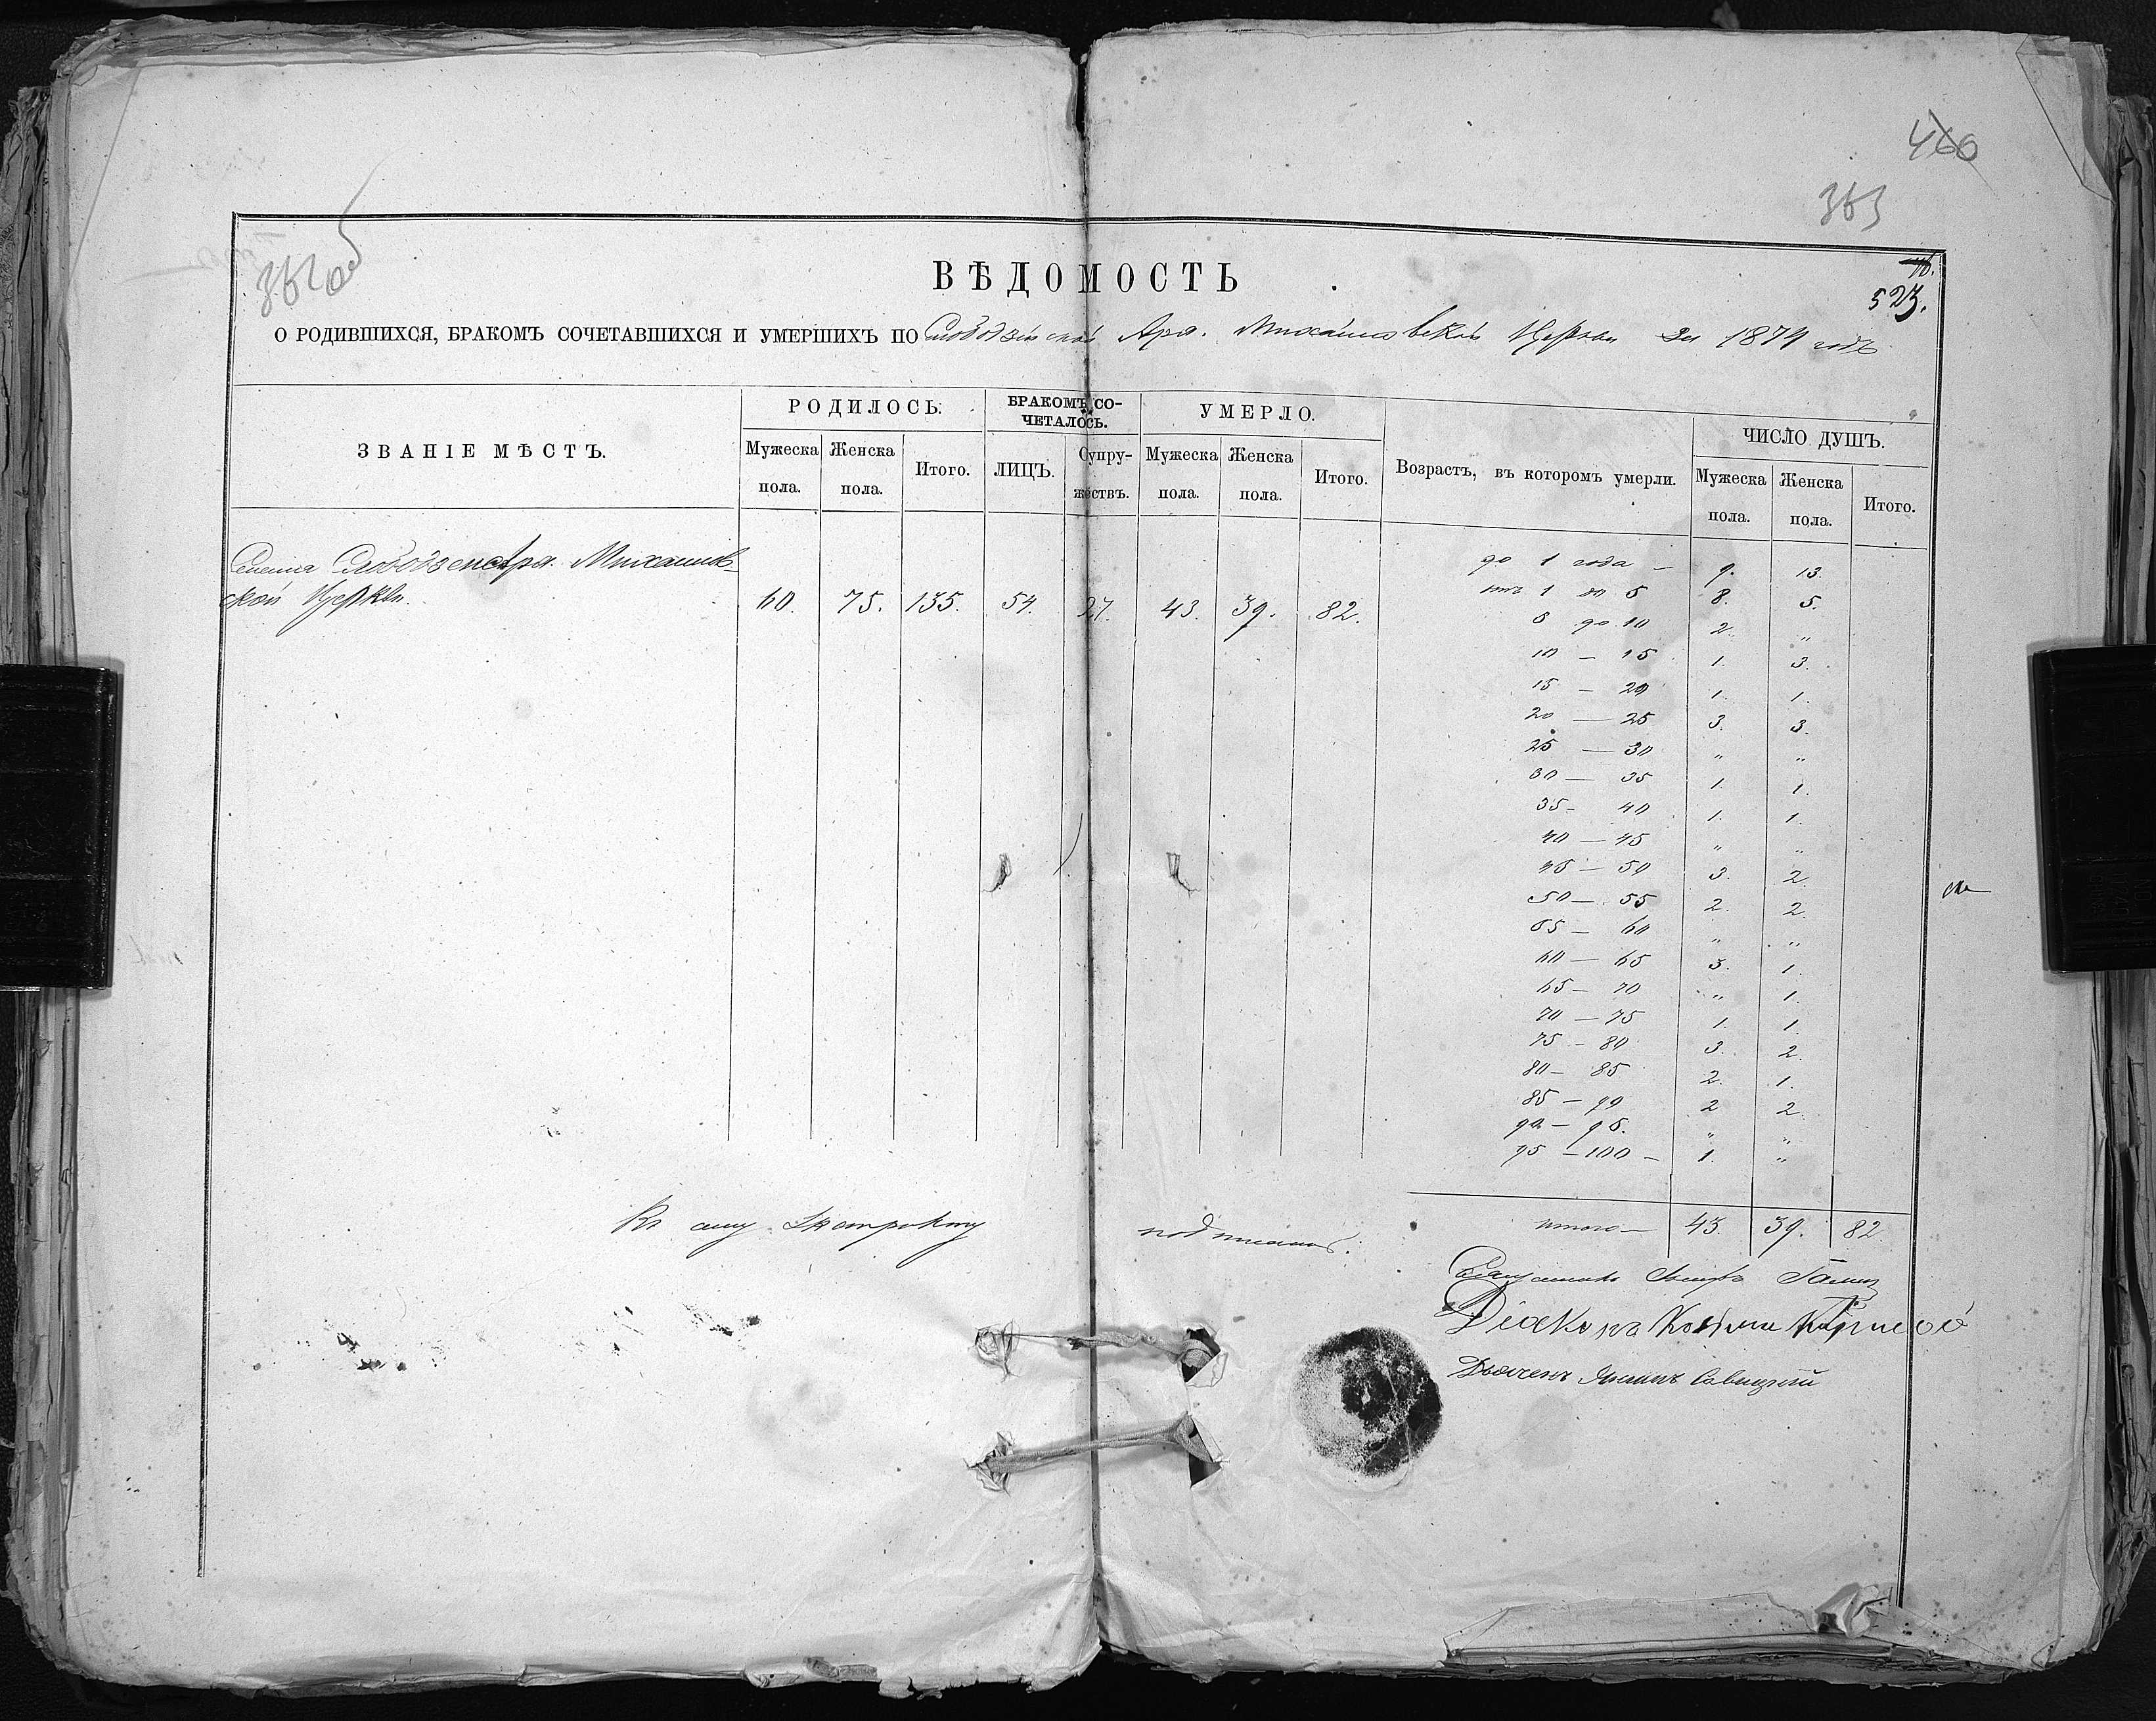 460
363
362 об
ВѢДОМОСТЬ
16.
523.
О РОДИВШИХСЯ, БРАКОМЪ СОЧЕТАВШИХСЯ И УМЕРШИХЪ ПО Слободзейской Арх. Михайловской Церкви за 1879 годъ
ЗВАНІЕ МѢСТЪ.
РОДИЛОСЬ.
БРАКОМЪ СО-
ЧЕТАЛОСЬ.
УМЕРЛО.
Возрастъ, въ которомъ умерли.
ЧИСЛО ДУШЪ.
Мужеска пола.
Женска пола.
Итого.
ЛИЦЪ.
Супру-
жествъ.
Мужеска пола.
Женска пола.
Итого.
Мужеска пола.
Женска пола.
Итого.
Арх. Михайлов-
ской Церкви. 60. 75. 135. 54. 27. 43. 39. 82.
до 1 года — 9. 13.
отъ 1 до 5 8. 5.
5 до 10 2. "
10 — 15 1. 3.
15 — 20 1. 1.
20 — 25 3. 3.
25 — 30 " "
30 — 35 1. 1.
35 — 40 1. 1.
40 — 45 " "
45 — 50 3. 2.
50 — 55 2. 2.
55 — 60 " "
60 — 65 3. 1.
65 — 70 " 1.
70 — 75 1. 1.
75 — 80 3. 2.
80 — 85 2. 1.
85 — 90 2 2.
90 — 95. " "
95 — 100 — 1. "
итого — 43. 39. 82
Къ сему подписалъ:
Діаконъ
Дьячекъ Савицкій